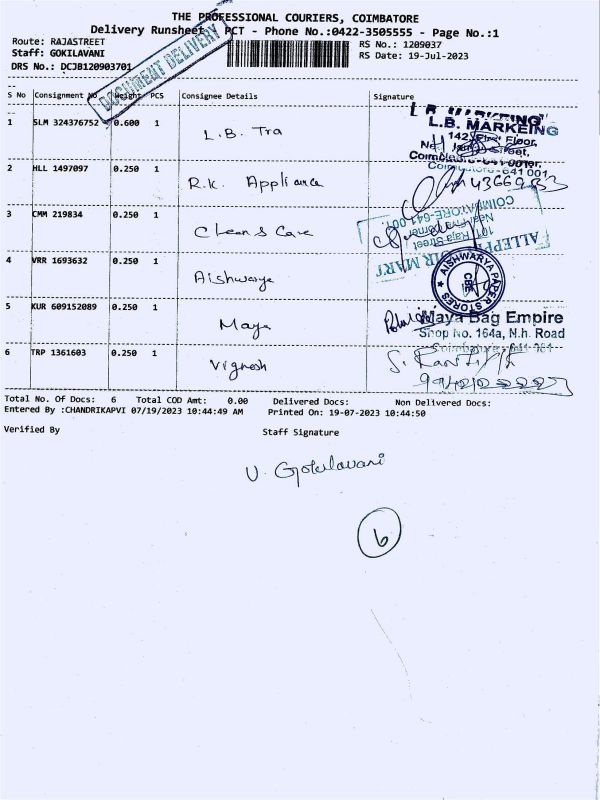 THE PROFESSIONAL COURIERS, COIMBATORE
Delivery Runsheet PCT - Phone No.:0422-3505555 - Page No.:1
Route: RAJASTREET
RS No.: 1209037
Staff: GOKILAVANI
RS Date: 19-Jul-2023
DRS No.: DCJB120903701
DOCUMENT DELIVERY
S No Consignment No Weight PCS Consignee Details Signature
1 SLM 324376752 0.600 1 L.B. Tra
L.B. MARKEING
142, First Floor,
2 HLL 1497097 0.250 1 R.K. Appliance
3 CMM 219834 0.250 1 Clean & Care
COIMBATORE-641 001.
101 Raja Street
4 VRR 1693632 0.250 1 Aishwarya
AISHWARYA PAPER STORES
CBE
5 KUR 609152089 0.250 1 Maya
Maya Bag Empire
Shop No. 164a, N.h. Road
6 TRP 1361603 0.250 1 Vignesh
Total No. Of Docs: 6 Total COD Amt: 0.00 Delivered Docs: Non Delivered Docs:
Entered By :CHANDRIKAPVI 07/19/2023 10:44:49 AM Printed On: 19-07-2023 10:44:50
Verified By Staff Signature
V. Gokilavani
6